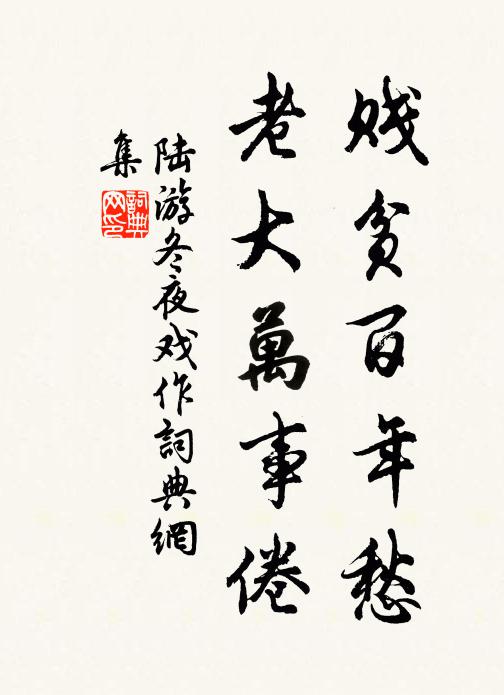 贱贫百年愁
老大萬事倦
陆游冬夜戏作詞典網
集
詞典
网印